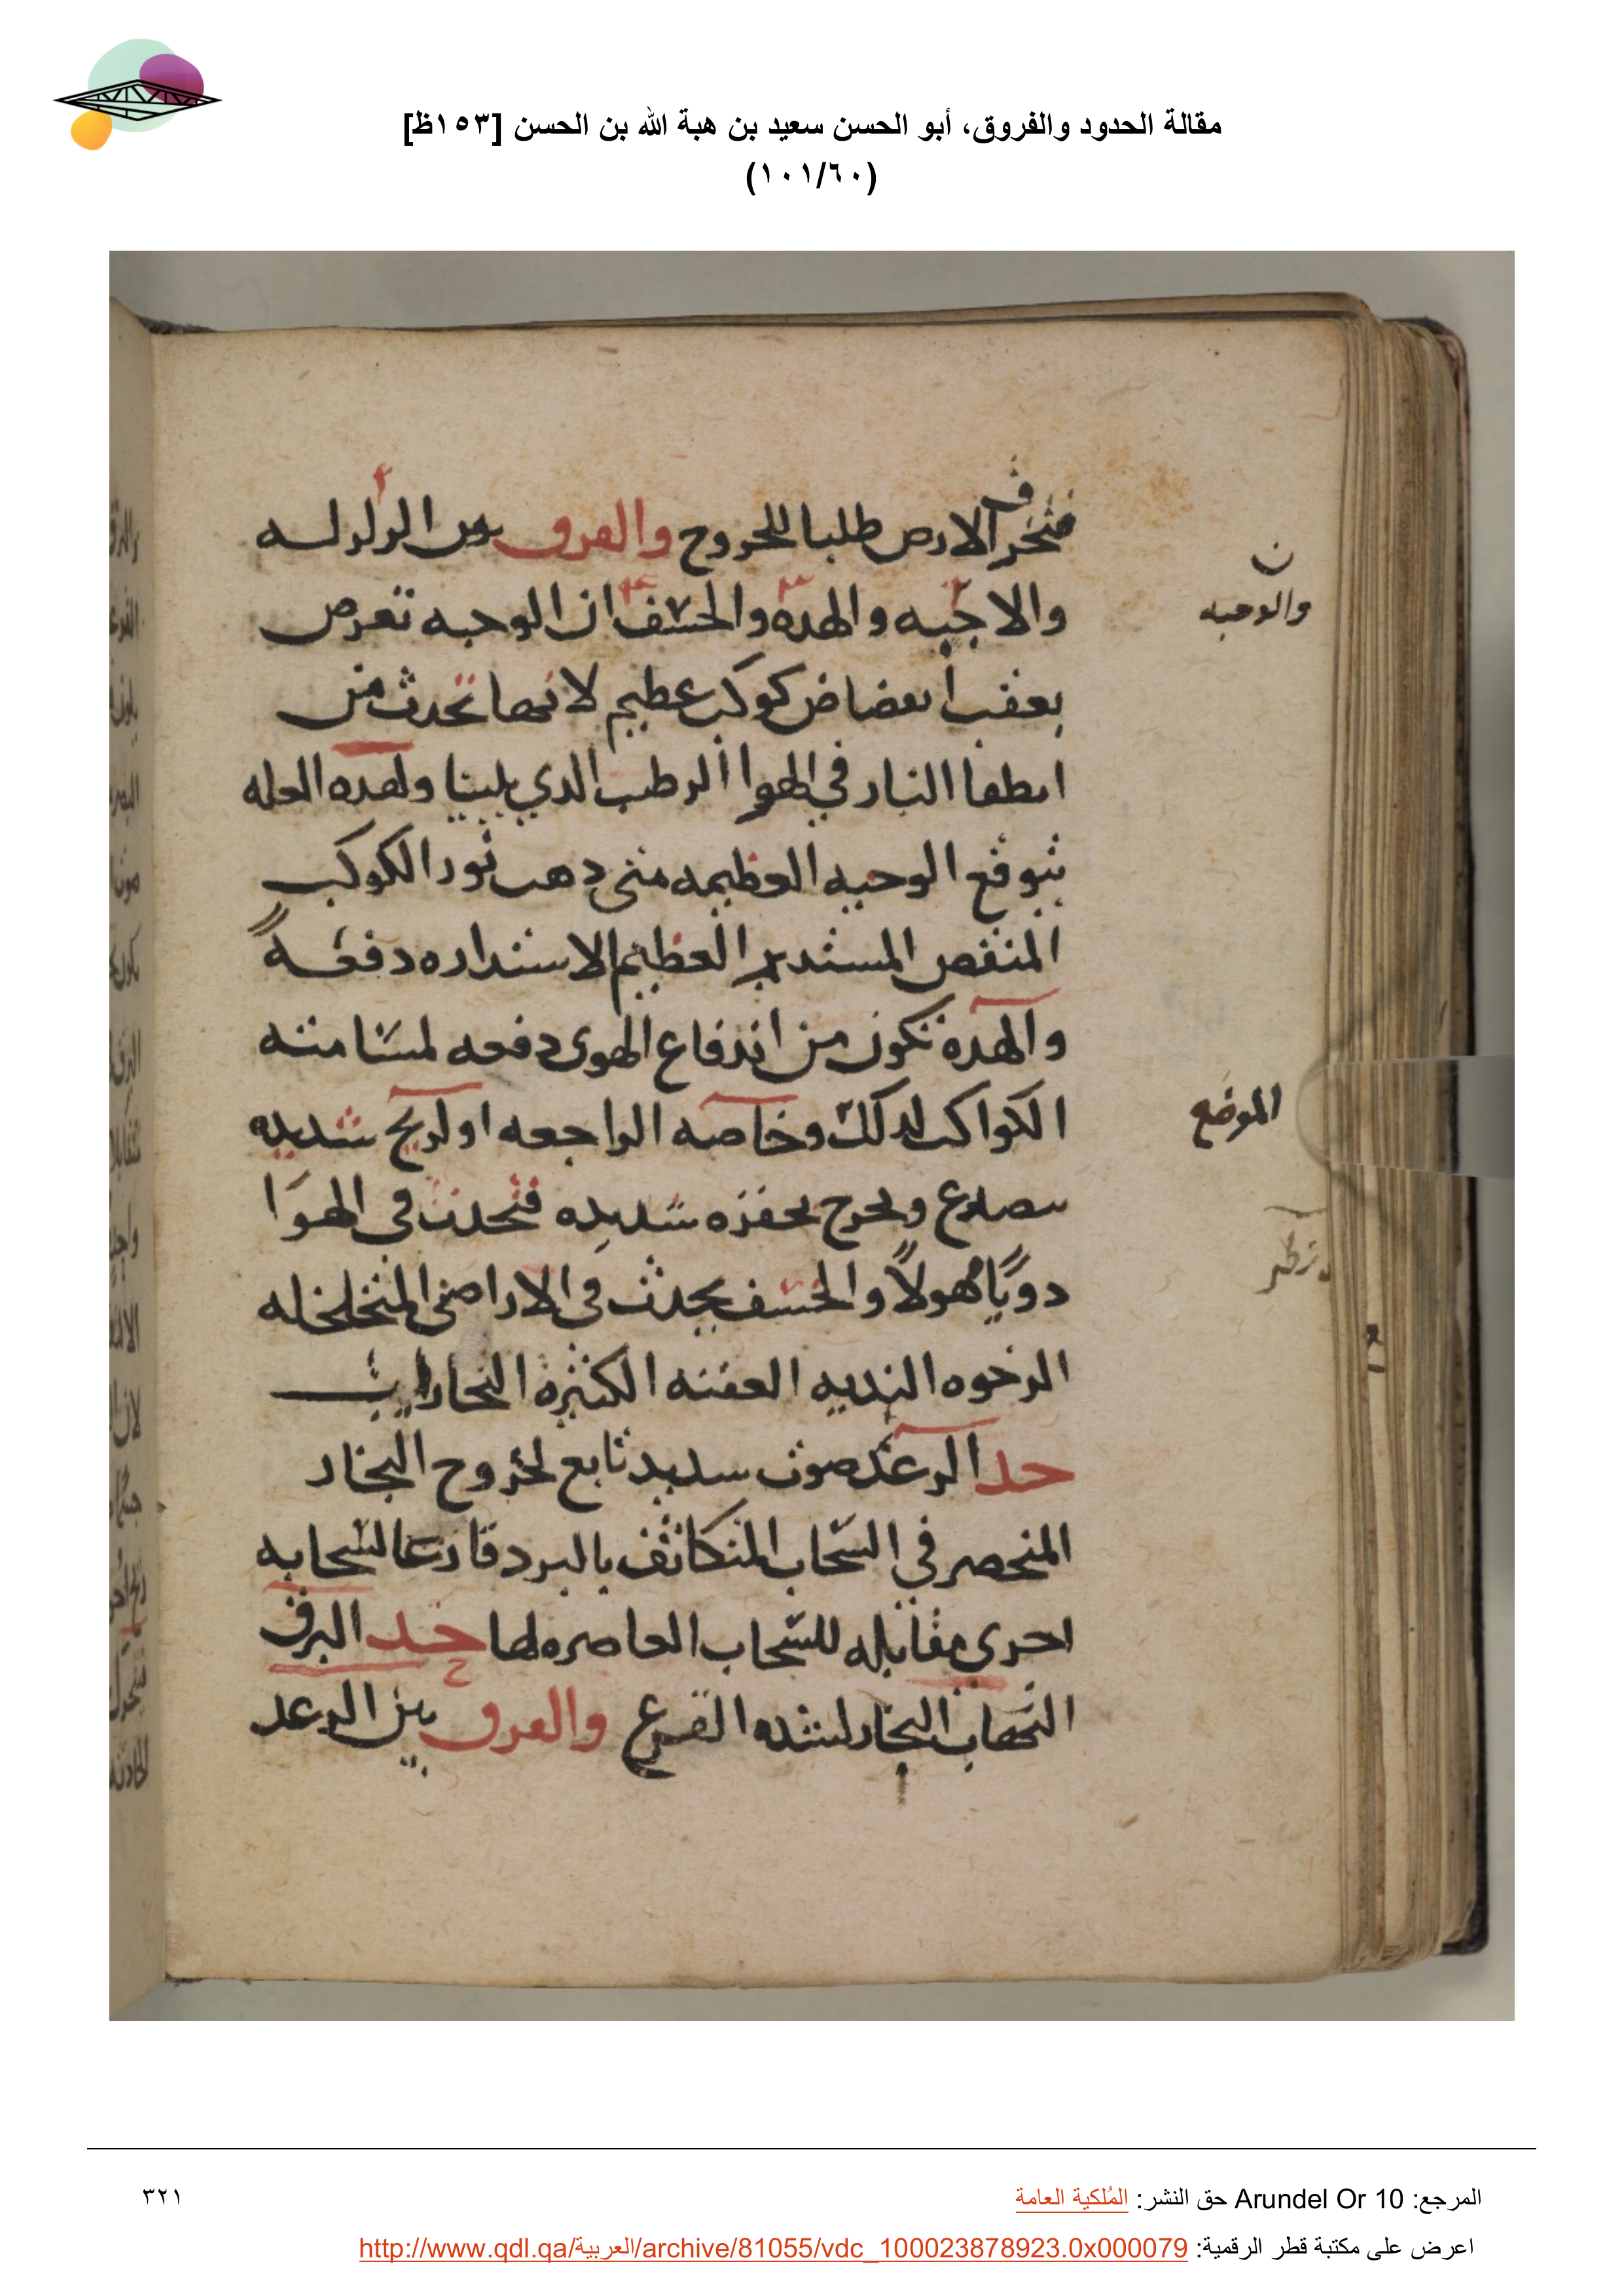 مقالة الحدود والفروق، أبو الحسن سعيد بن هبة الله بن الحسن [١٥٣ظ]
(١٠١/٦٠)
الارض طلبا للخروج والفرق بين الزلزلـه
والوجبه
والهده والخسف ان الوجبه تعرض
بعقب انقضاض كوكب عظيم لانها تحدث من
انطفا النار في الهوا الرطب الدي يلينا ولهده العله
يتوقع الوجبه العظيمه متى دهب نور الكوكب
المنقض المستدير العظيم الاستداره دفعـةً
والهدة تكون من اندفاع الهوى دفعه لمسامتته
الكواكب لدلك وخاصه الراجعه او لريح شديده
الموضع
ويخرج بحفزه شديده فتحدث في الهوا
دويًا مهولاً والخسف يحدث في الاراضي المتخلخله
الرخوه النديه العفنه الكثيرة البخارات
حد الرعد صوت شديد تابع لخروج البخار
المنحصر في السحاب المتكاثف بالبرد قارعا لسحابه
اخرى مقابله للسحاب العاصره لها حد البرق
التهاب البخار لشده القرع والفرق بين الرعد
المرجع: Arundel Or 10 حق النشر: المُلكية العامة
٣٢١
اعرض على مكتبة قطر الرقمية: http://www.qdl.qa/العربية/archive/81055/vdc_100023878923.0x000079